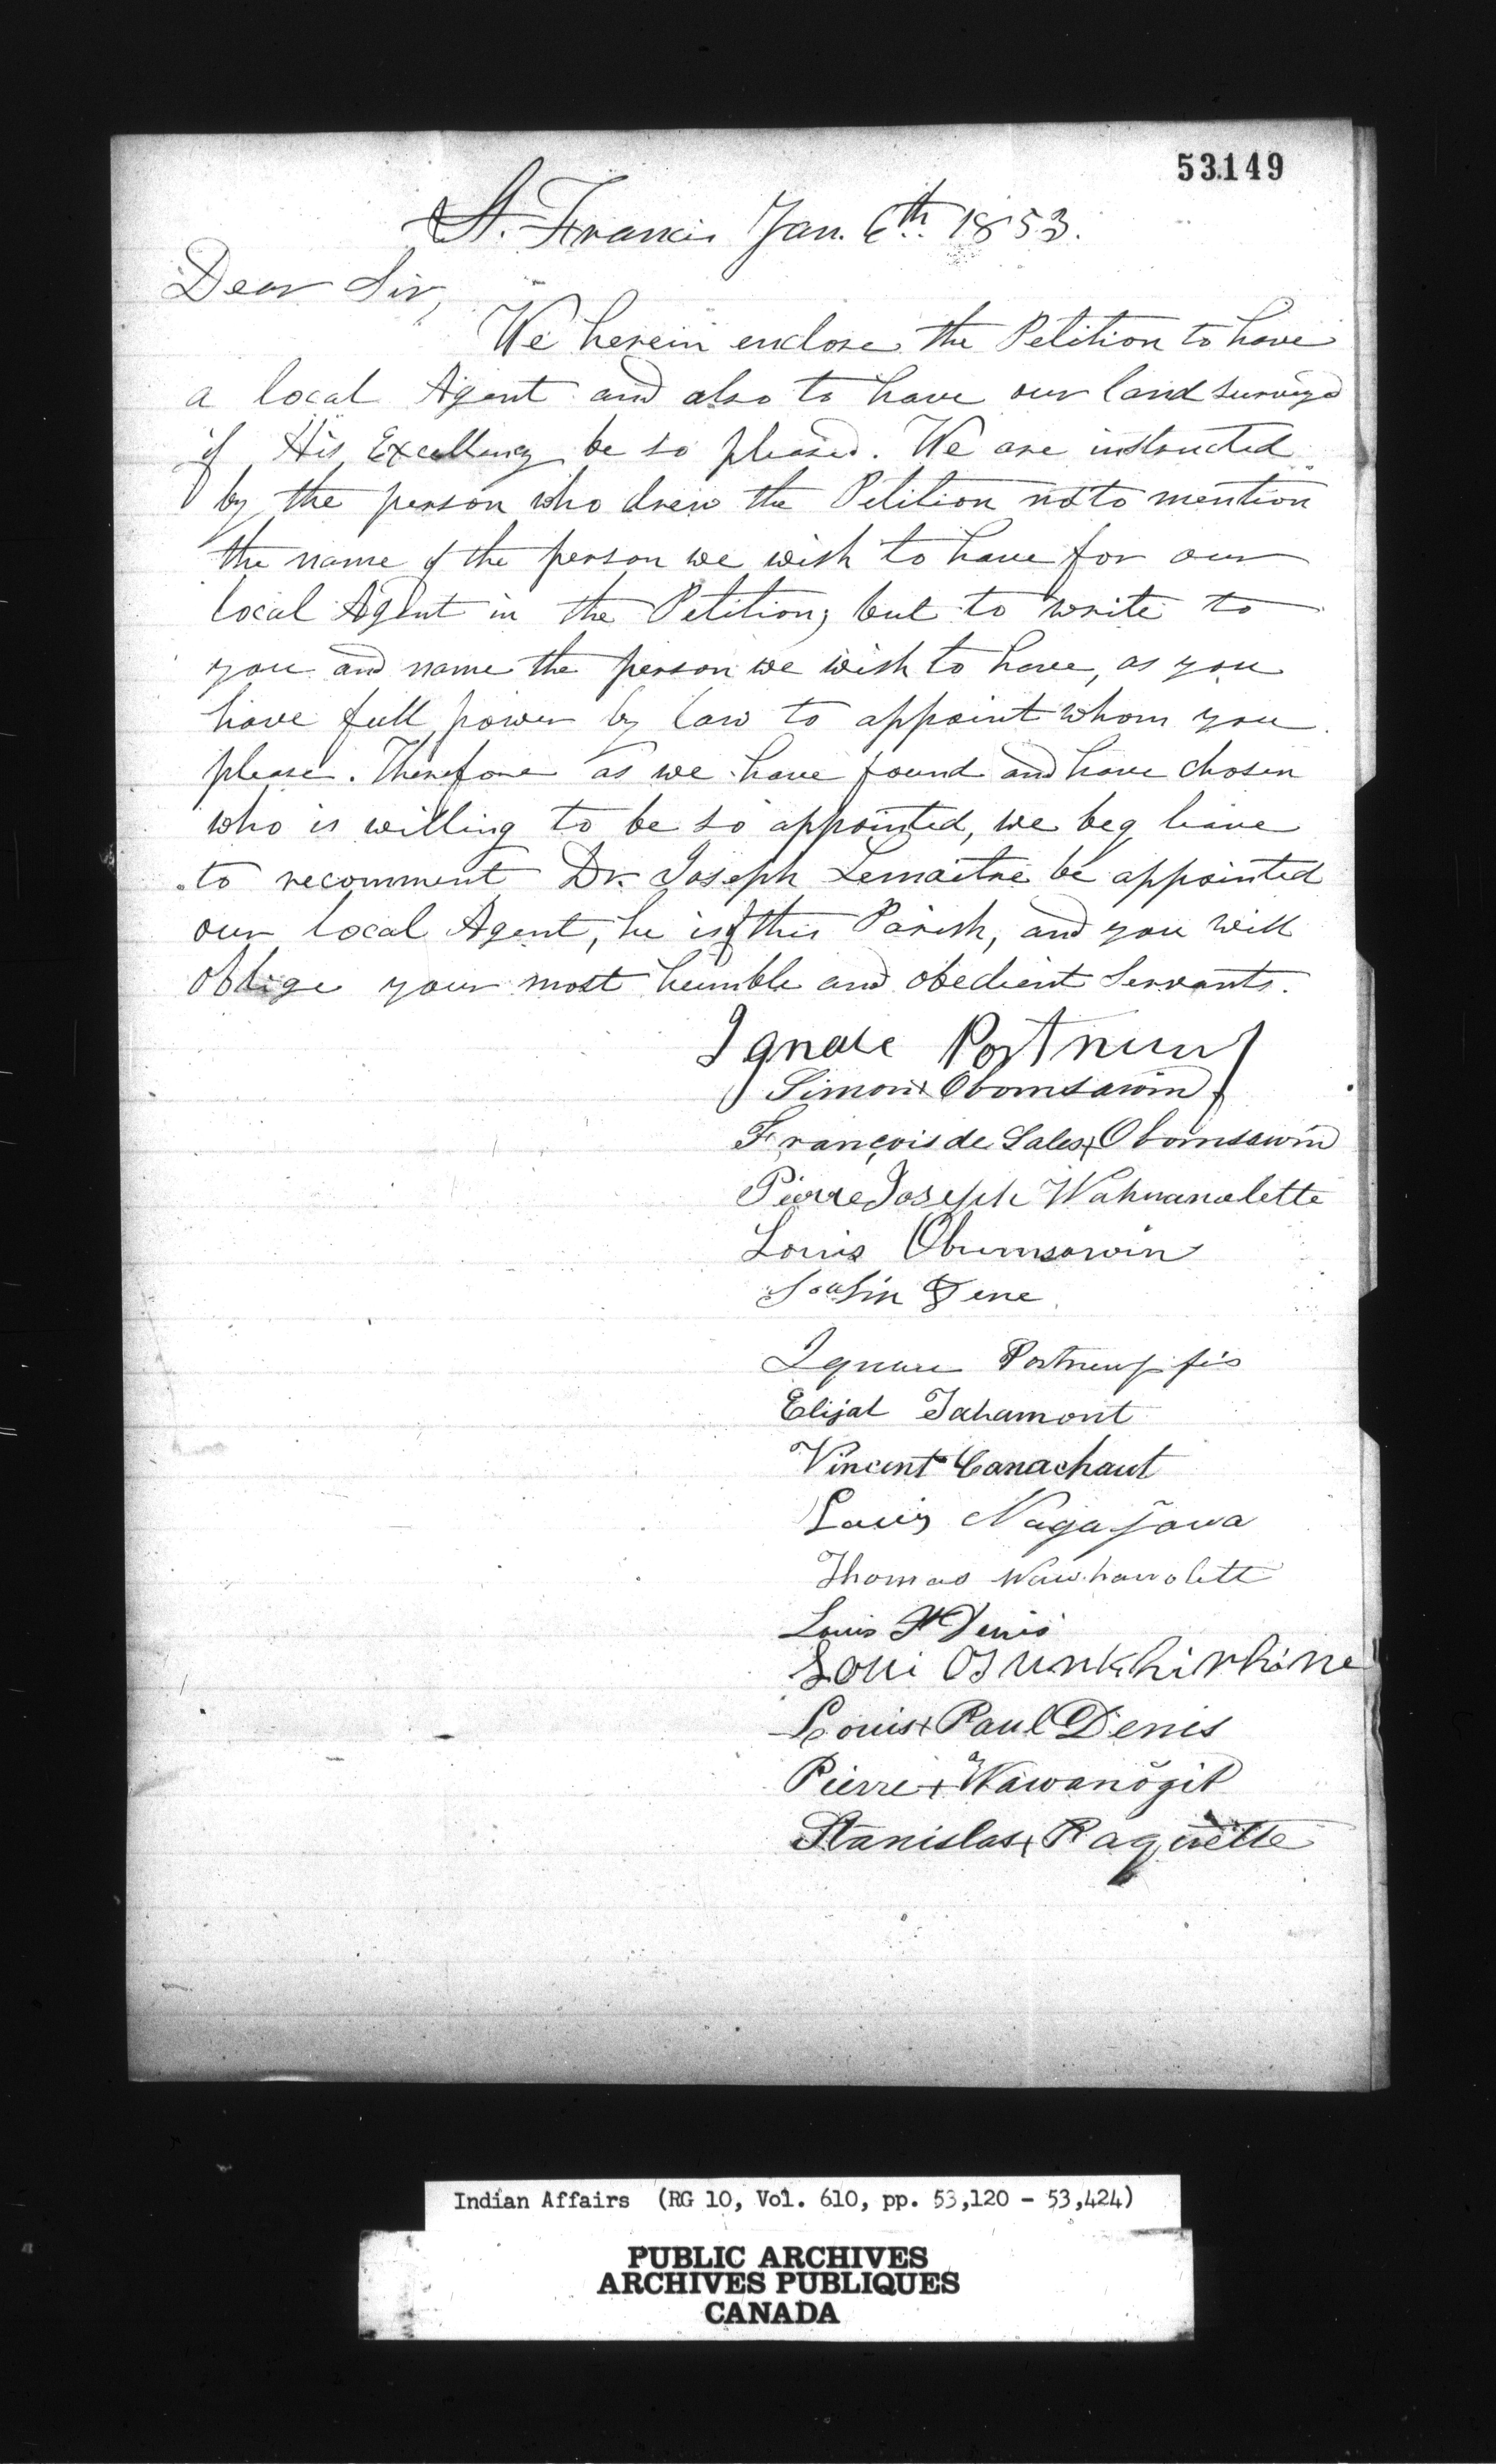 53149
St. Francis Jan. 6th. 1853.
Dear Sir,
We herein enclose the Petition to have
a local Agent and also to have our land surveyd
if His Excellency be so pleased. We are instructed
by the person who drew the Petition not to mention
the name of the person we wish to have for our
local Agent in the Petition; but to write to
you and name the person we wish to have, as you
have full power by law to appoint whom you
please. Therefore as we have found and have chosen
who is willing to be so appointed, we beg leave
to recomment Dr. Joseph Lemaitre be appointed
our local Agent, he is of this Parish, and you will
oblige your most humble and obedient Servants.
Ignace Portneuf
Simon + Obomsawin
François de Sales + Obomsawin
Pierre Joseph Wahwanolette
Louis Obumsawin
Ignace Portneuf fis
Elijah Tahamont
Vincent Canachaut
Louis
Thomas Wawhanolett
Louis Denis
Soui Osunkhirhine
Louis + Paul Denis
Pierre + Wawanŏgit
Stanislas + Raquette
Indian Affairs (RG 10, Vol. 610, pp. 53,120 - 53,424)
PUBLIC ARCHIVES
ARCHIVES PUBLIQUES
CANADA